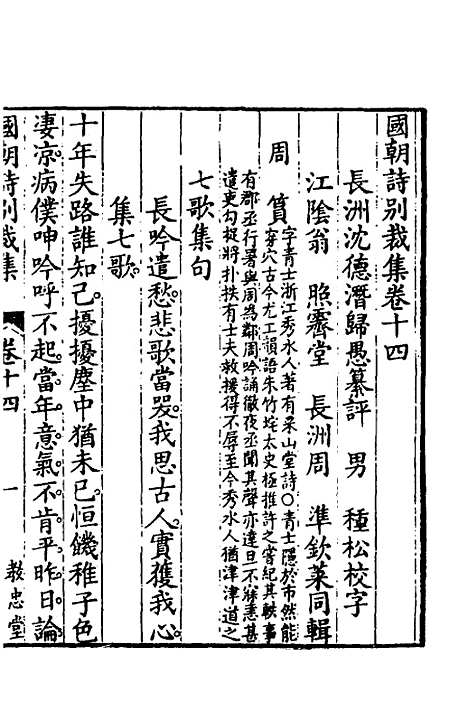 國朝詩別裁集卷十四
長洲沈德潛歸愚纂評　男　種松校字
江陰翁　照霽堂　長洲周　準欽萊同輯
周　篔
字青士浙江秀水人著有采山堂詩○青士隱於市然能
穿穴古今尤工韻語朱竹垞太史極推許之嘗紀其軼事
有郡丞行署與周為鄰周吟誦徹夜丞聞其聲亦達旦不寐恚甚
遣吏勾捉將扑抶有士夫救援得不辱至今秀水人猶津津道之
七歌集句
長吟遣愁悲歌當哭我思古人實獲我心
集七歌
十年失路誰知己擾擾塵中猶未已恒饑稚子色
凄涼病僕呻吟呼不起當年意氣不肯平昨日論
國朝詩別裁集　卷十四　一　教忠堂